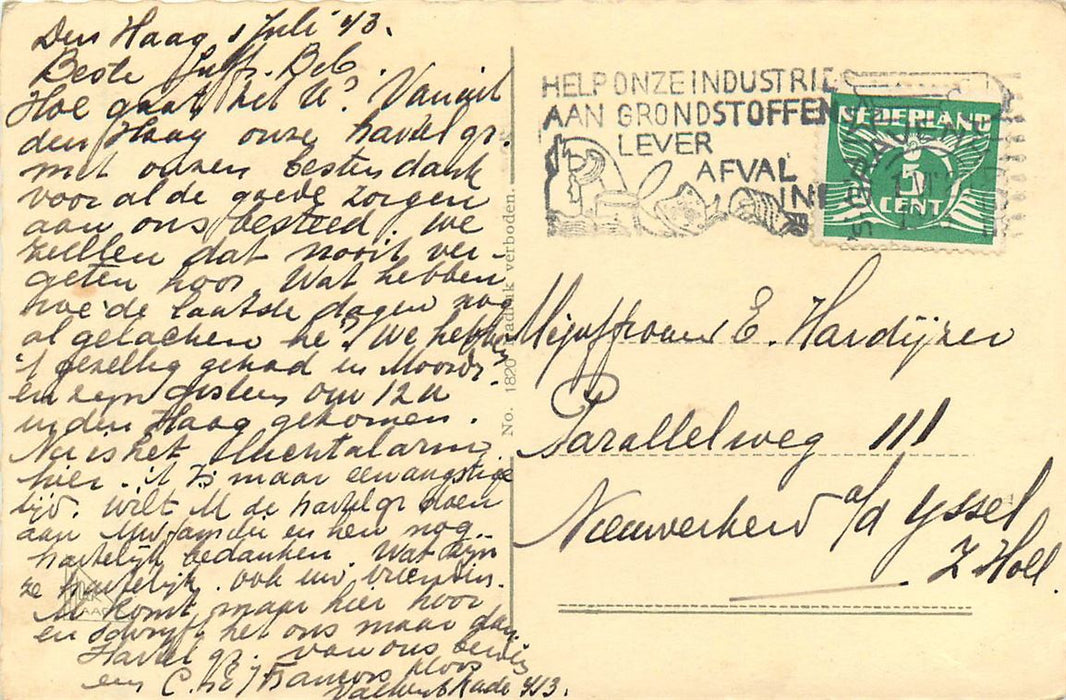 Den Haag 1 Juli '43.
Beste Juffr. Beb.
Hoe gaat het U? Vanuit
den Haag onze hartel. gr.
met onzen besten dank
voor al de goede zorgen
aan ons besteed. We
zullen dat nooit ver-
geten hoor. Wat hebben
we de laatste dagen nog
al gelachen hè? We hebben
't gezellig gehad in Moordr.
en zijn gisteren om 12 u
in den Haag gekomen.
Nu is het luchtalarm
hier. 't Is maar een angstige
tijd. Wilt U de hartel gr doen
aan Uw familie en hen nog
hartelijk bedanken. Wat zijn
ze hartelijk. ook uw vriendin.
U komt maar hier hoor
en schrijft het ons maar dan
Hartel gr. van ons beiden
en C.
43.
No. 1820 Nadruk verboden.
HELP ONZE INDUSTRIE
AAN GRONDSTOFFEN
LEVER
AFVAL
IN
NEDERLAND
5
CENT
Mejuffrouw E. Hardijzer
Parallelweg 111
Nieuwerkerk a/d Yssel
Z Holl.